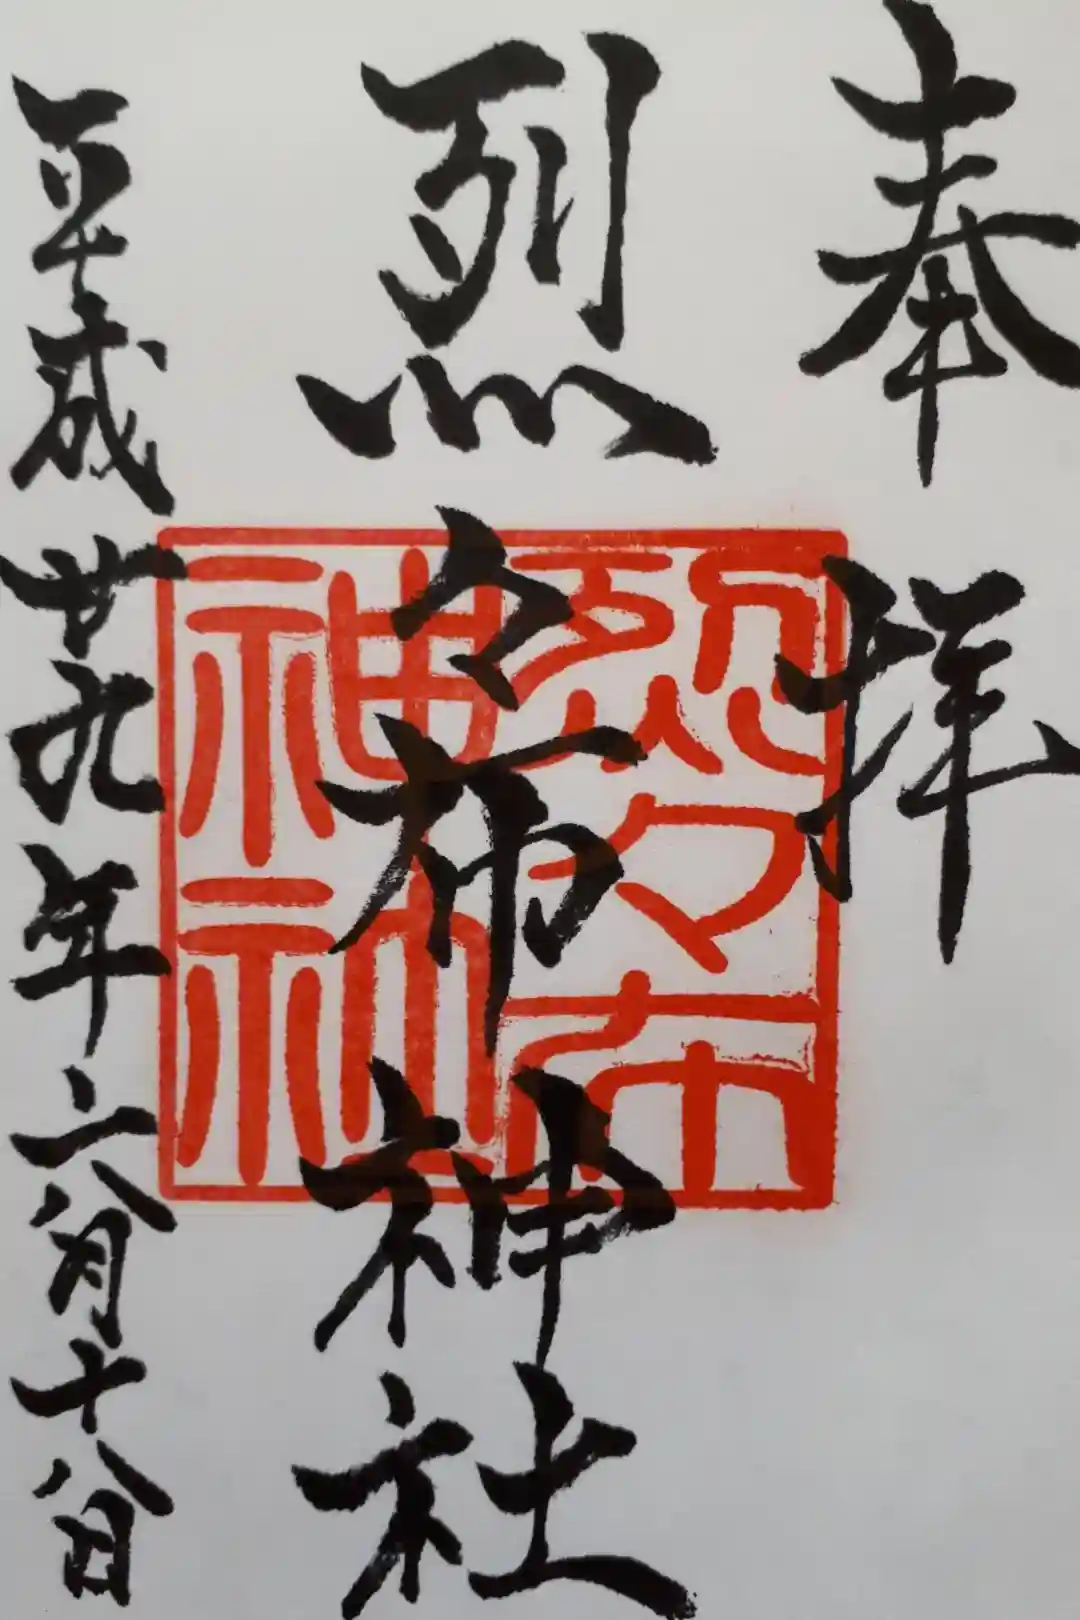 奉拝
烈々布神社
烈々布神社
平成廿九年六月十八日